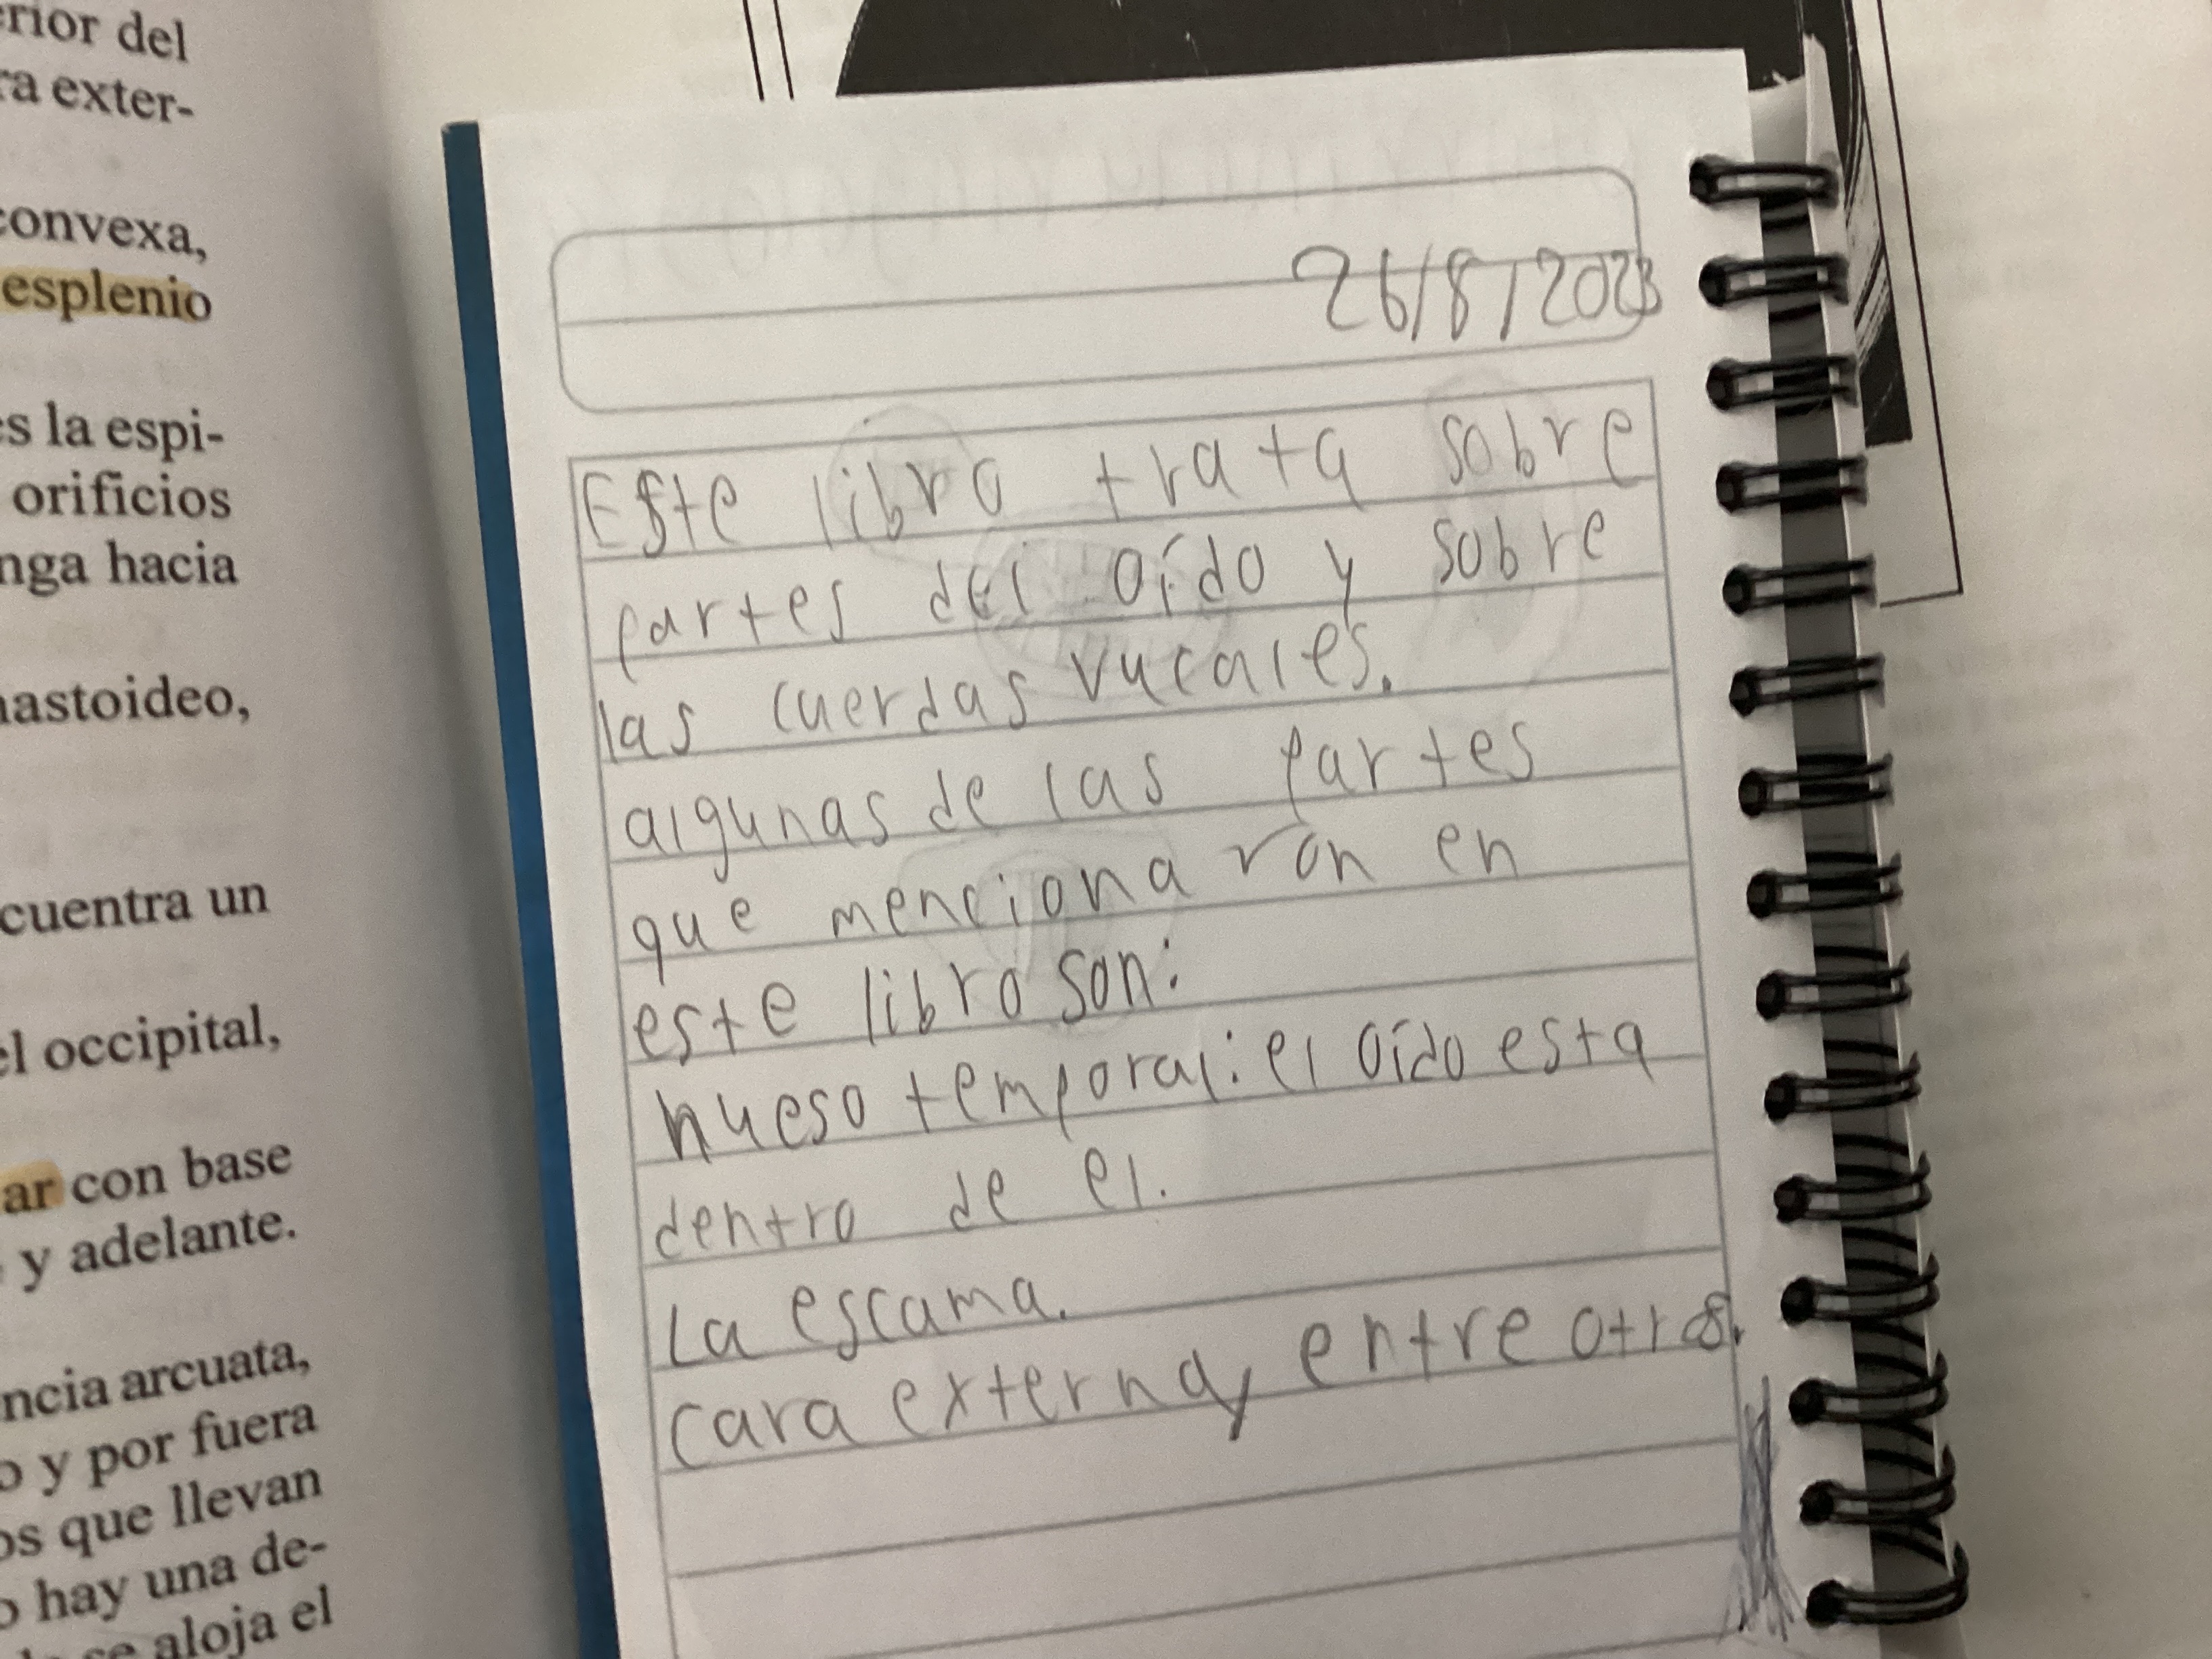 rior del
ra exter-
convexa,
esplenio
es la espi-
orificios
nga hacia
nastoideo,
cuentra un
el occipital,
ar con base
y adelante.
ncia arcuata,
o y por fuera
os que llevan
o hay una de-
se aloja el
26/8/2023
Este libro trata sobre
partes del oído y sobre
las cuerdas vucales.
algunas de las partes
que mencionaron en
este libro son:
hueso temporal: el oído esta
dentro de el.
La escama.
cara externa, entre otros.